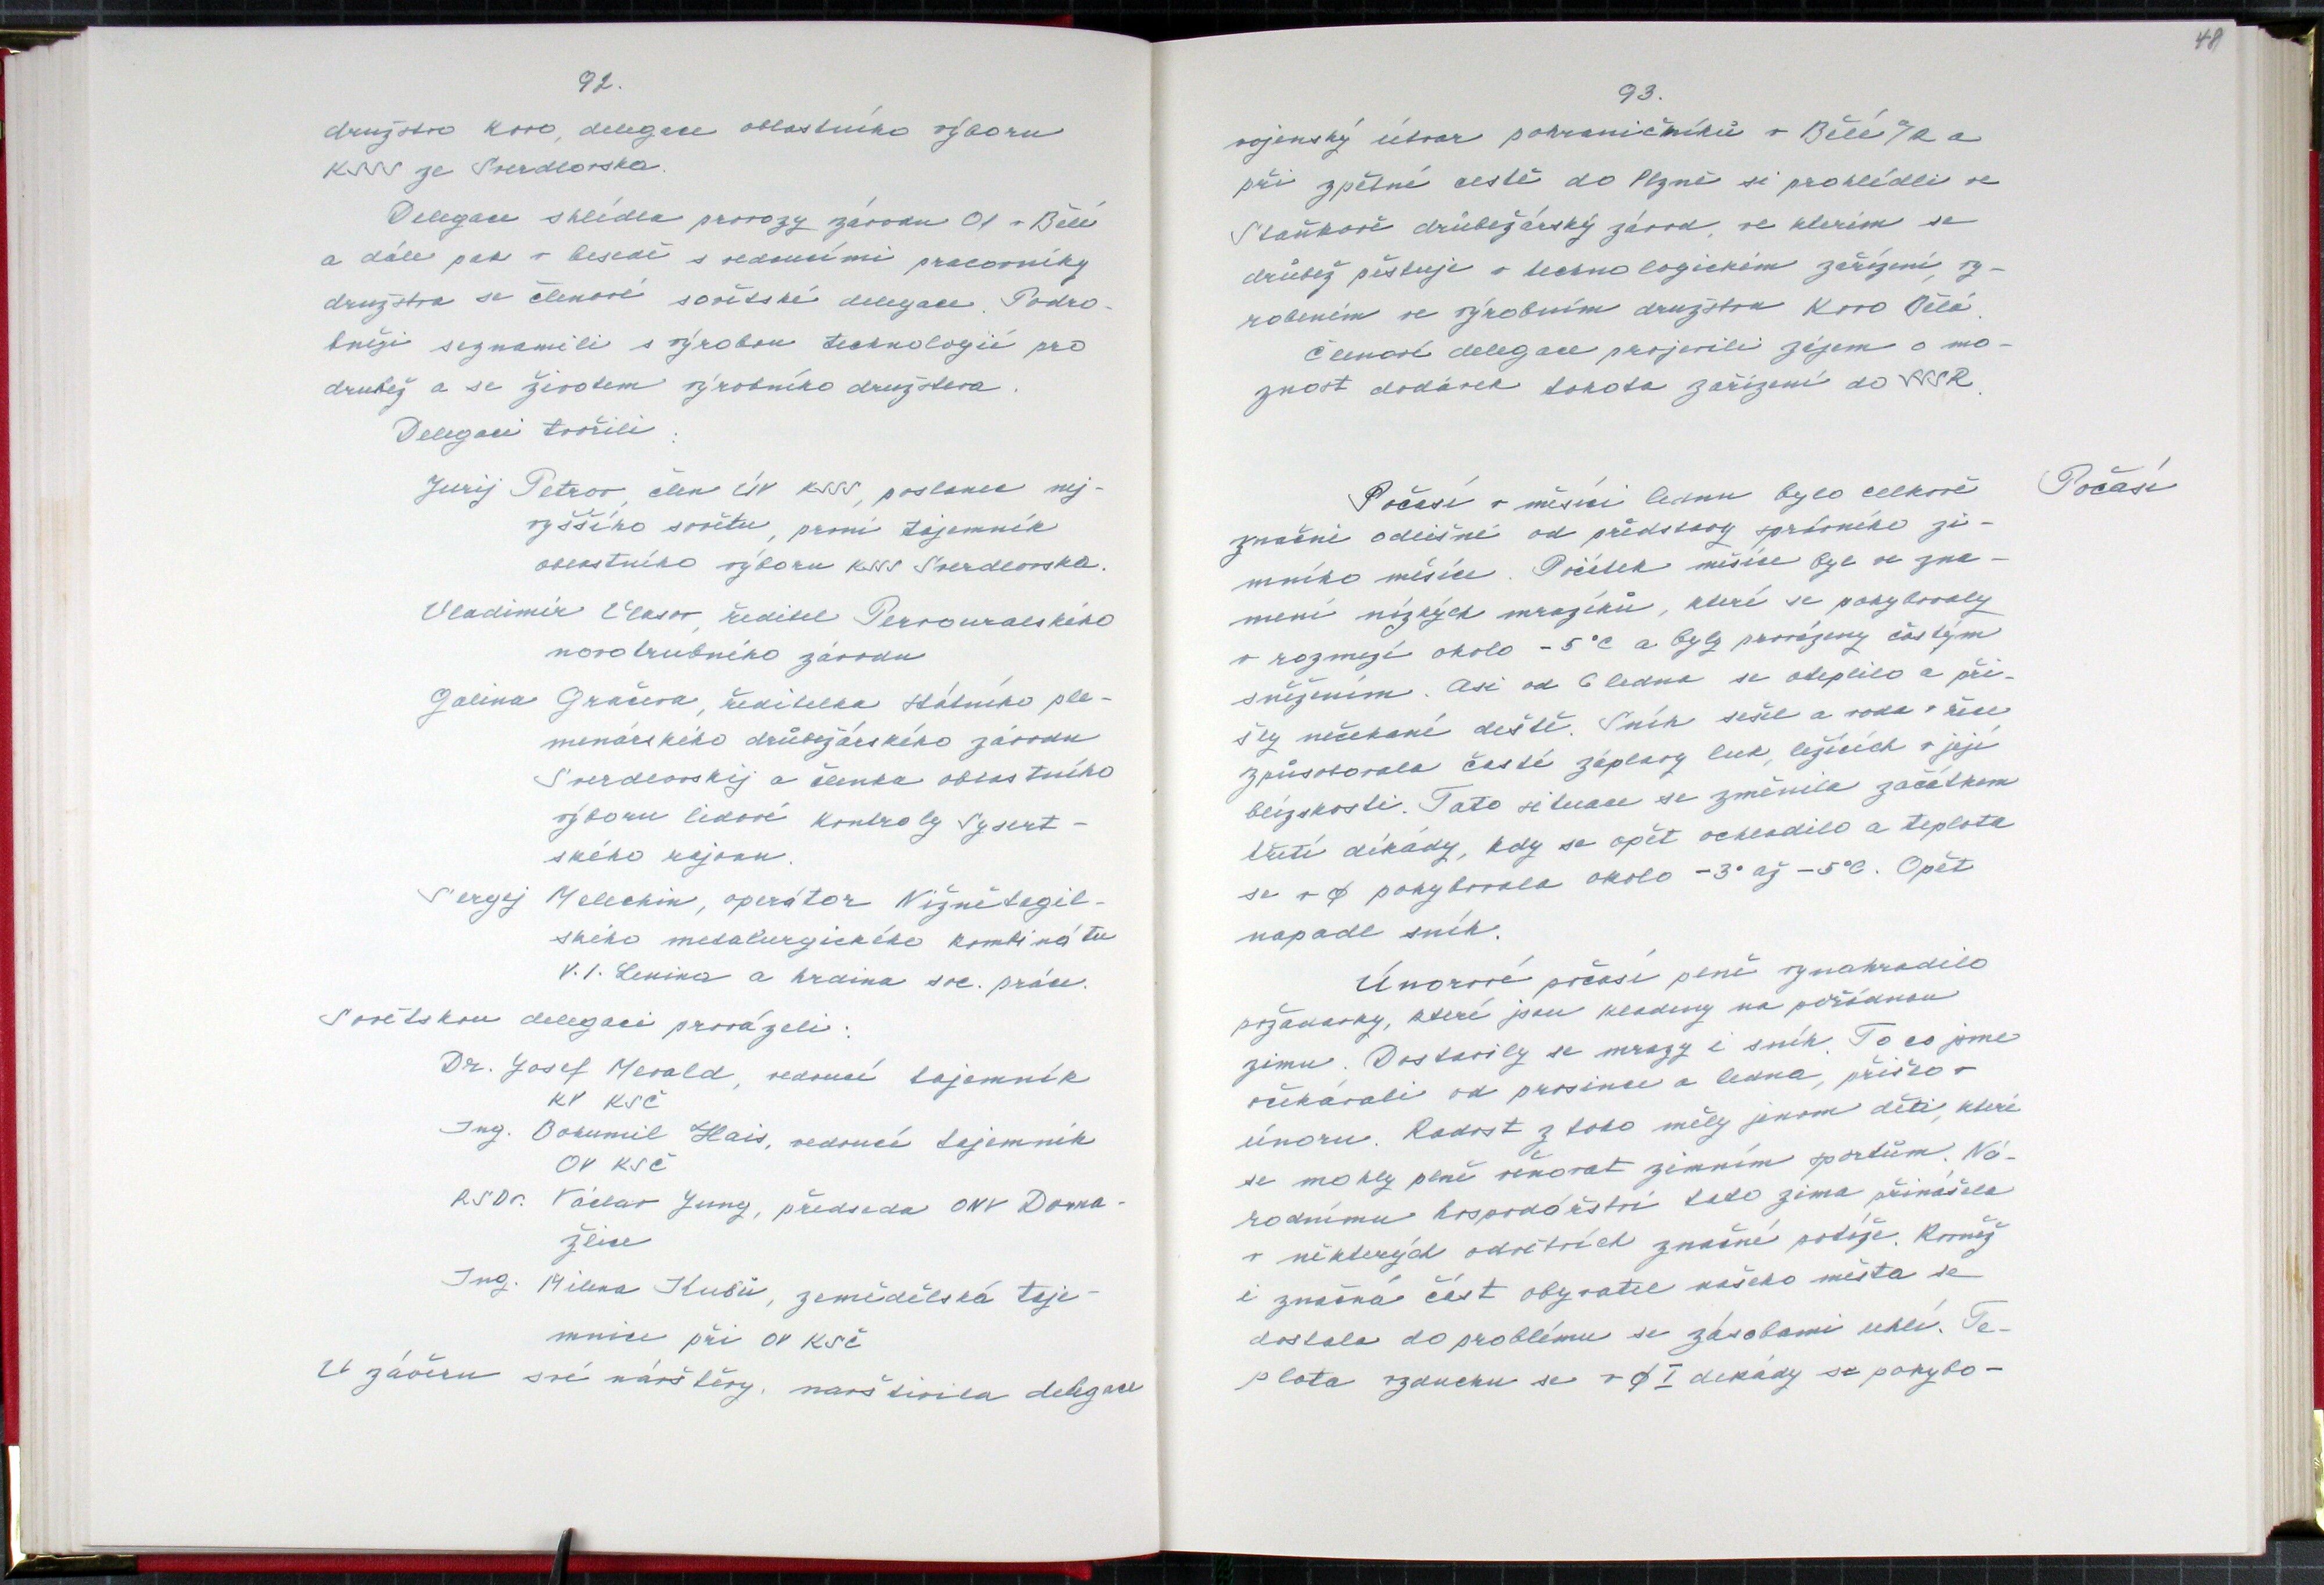 92.
družstvo Kovo, delegace oblastního výboru
KSSS ze Sverdlovska.
Delegace shlédla provozy závodu 01 v Bělé
a dále pak v besedě s vedoucími pracovníky
družstva se členové sovětské delegace. Podro-
bněji seznámili s výrobou technologií pro
drubež a se životem výrobního družstva.
Delegaci tvořili:
Jurij Petrov, člen ÚV KSSS, poslanec nej-
vyššího sovětu, první tajemník
oblastního výboru KSSS Sverdlovska.
Vladimír Vlasov, ředitel Pervouralského
novotrubného závodu
Galina Gračeva, ředitelka státního ple-
menářského drůbežářského závodu
Sverdlovskij a členka oblastního
výboru lidové kontroly Sysert-
ského rajonu.
Sergej Melechin, operátor Nižnětagil-
ského metalurgického kombinátu
V. I. Lenina a hrdina soc. práce.
Sovětskou delegaci provázeli:
Dr. Josef Mevald, vedoucí tajemník
KV KSČ
Ing. Bohumil Hais, vedoucí tajemník
OV KSČ
RSDr. Václav Jung, předseda ONV Doma-
žlice
Ing. Milena Kubů, zemědělská taje-
mnice při OV KSČ
V závěru své návštěvy, navštívila delegace
48
93.
vojenský útvar pohraničníků v Bělé n/R a
při zpětné cestě do Plzně si prohlédli ve
Staňkově drůbežárský závod, ve kterém se
drůbež pěstuje v technologickém zařízení, vy-
robeném ve výrobním družstvu Kovo Bělá.
Členové delegace projevili zájem o mo-
znost dodávek tohota zařízení do SSSR.
Počasí
Počasí v měsíci lednu bylo celkově
značně odlišné od představy správného zi-
mního měsíce. Počátek měsíce byl ve zna-
mení nízkých mrazíků, které se pohybovaly
v rozmezí okolo -5°C a byly provázeny častým
sněžením. Asi od 6 ledna se oteplilo a při-
šly nečekané deště. Sníh sešel a voda v řece
způsobovala časté záplavy luk, ležících v její
blízskosti. Tato situace se změnila začátkem
třetí dekády, kdy se opět ochladilo a teplota
se v ϕ pohybovala okolo -3° až -5°C. Opět
napadl sníh.
Únorové počasí plně vynahradilo
požadavky, které jsou kladeny na pořádnou
zimu. Dostavily se mrazy i sníh. To co jsme
očekávali od prosince a ledna, přišlo v
únoru. Radost z toho měly jenom děti, které
se mohly plně věnovat zimním sportům. Ná-
rodnímu hospodářství tato zima přinášela
v některých odvětvích značné potíže. Rovněž
i značná část obyvatel našeho města se
dostala do problému se zásobami uhlí. Te-
plota vzduchu se v ϕ I dekády se pohybo-